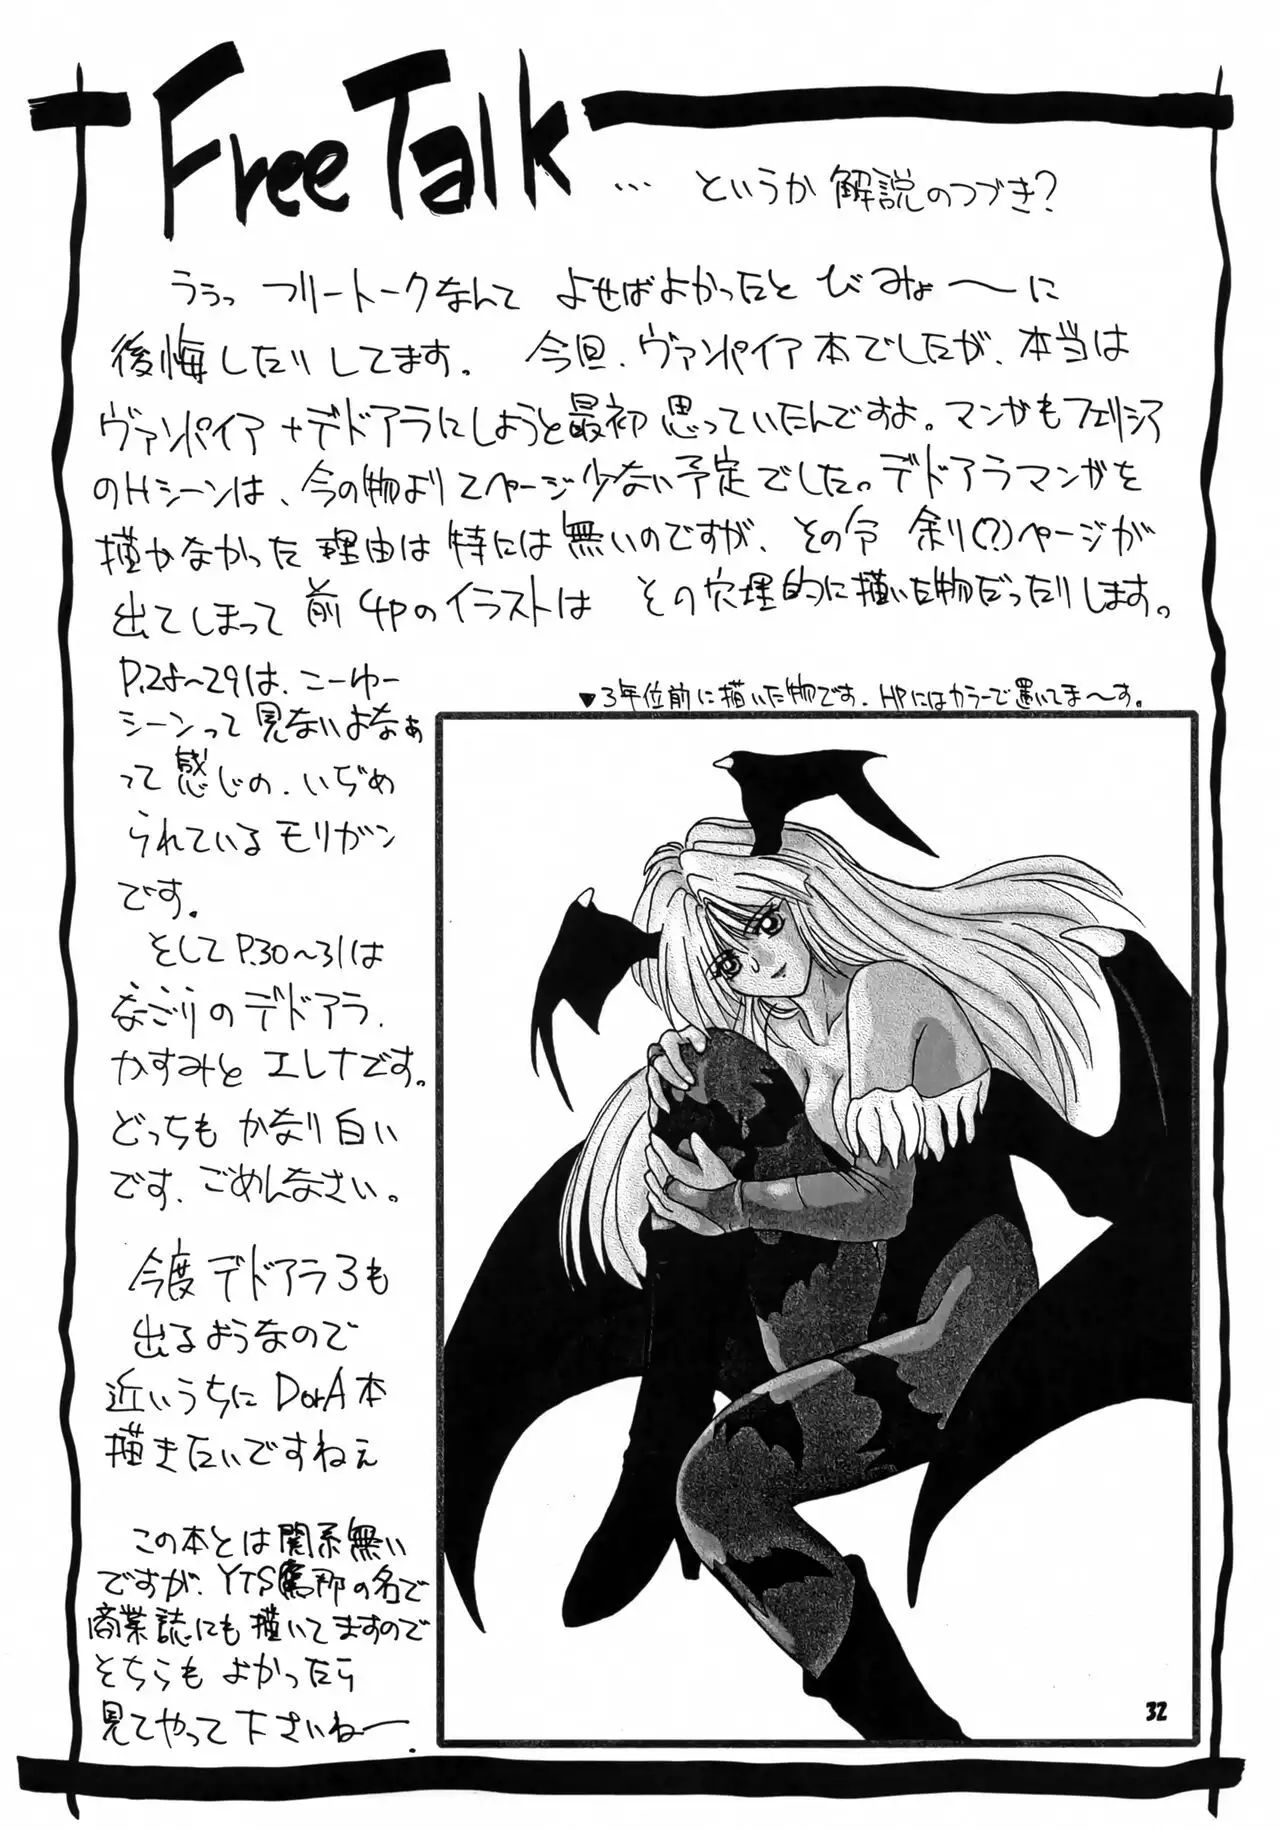 Free Talk
… というか 解説のつづき?
ううっ フリートークなんて よせばよかったと びみょ〜に
後悔したりしてます。 今回、ヴァンパイア本でしたが、本当は
ヴァンパイア+デドアラにしようと最初思っていたんですよ。マンガもフェリシア
のHシーンは、今の物より2ページ少ない予定でした。デドアラマンガを
描かなかった理由は特には無いのですが、その分 余り(?)ページが
出てしまって 前4Pのイラストは その穴埋的に描いた物だったりします。
▼3年位前に描いた物です。HPにはカラーで置いてま〜す。
P.28〜29は、こーゆー
シーンって見ないよなぁ
って感じの、いぢめ
られているモリガン
です。
そしてP.30〜31は
なごりのデドアラ、
かすみと エレナです。
どっちも かなり白い
です、ごめんなさい。
今度デドアラ3も
出るようなので
近いうちに DorA本
描きたいですねぇ
この本とは関系無い
ですが、YTS 那の名で
商業誌にも描いてますので
そちらも よかったら
見てやって下さいねー。
32